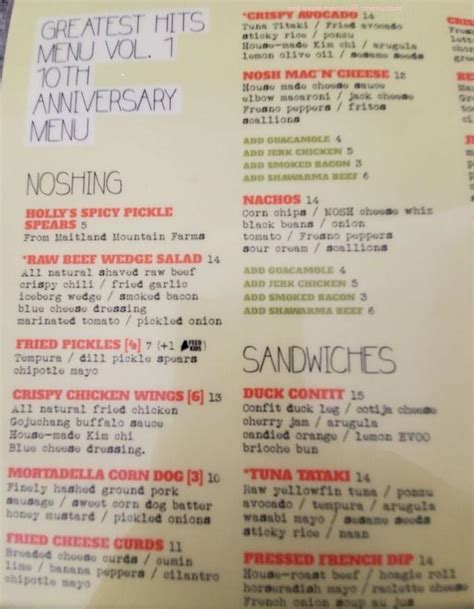 GREATEST HITS
MENU VOL. 1
10TH
ANNIVERSARY
MENU
NOSHING
HOLLY'S SPICY PICKLE
SPEARS 5
From Maitland Mountain Farms
*RAW BEEF WEDGE SALAD 14
All natural shaved raw beef
crispy chili / fried garlic
iceberg wedge / smoked bacon
blue cheese dressing
marinated tomato / pickled onion
FRIED PICKLES [4] 7 (+1 FEED KIDS)
Tempura / dill pickle spears
chipotle mayo
CRISPY CHICKEN WINGS [6] 13
All natural fried chicken
Gojuchang buffalo sauce
House-made Kim chi
Blue cheese dressing.
MORTADELLA CORN DOG [3] 10
Finely hashed ground pork
sausage / sweet corn dog batter
honey mustard / pickled onions
FRIED CHEESE CURDS 11
Breaded cheese curds / cumin
lime / banana peppers / cilantro
chipotle mayo
*CRISPY AVOCADO 14
Tuna Titaki / Fried avocado
sticky rice / ponzu
House-made Kim chi / arugula
lemon olive oil / sesame seeds
NOSH MAC'N'CHEESE 12
House made cheese sauce
elbow macaroni / jack cheese
Fresno peppers / fritos
scallions
ADD GUACAMOLE 4
ADD JERK CHICKEN 5
ADD SMOKED BACON 3
ADD SHAWARMA BEEF 6
NACHOS 14
Corn chips / NOSH cheese whiz
black beans / onion
tomato / Fresno peppers
sour cream / scallions
ADD GUACAMOLE 4
ADD JERK CHICKEN 5
ADD SMOKED BACON 3
ADD SHAWARMA BEEF 6
SANDWICHES
DUCK CONFIT 15
Confit duck leg / cotija cheese
cherry jam / arugula
candied orange / lemon EVOO
brioche bun
*TUNA TATAKI 14
Raw yellowfin tuna / ponzu
avocado / tempura / arugula
wasabi mayo / sesame seeds
sticky rice / naan
PRESSED FRENCH DIP 14
House-roast beef / hoagie roll
horseradish mayo / raclette cheese
French onion soup au jus